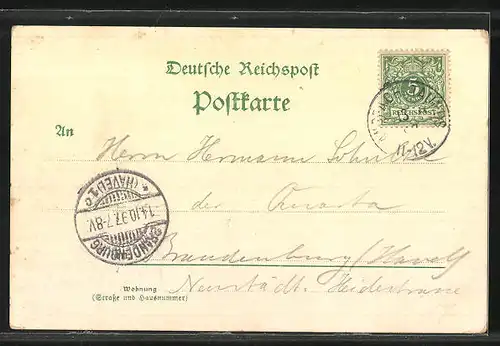 Deutsche Reichspost
Postkarte
5
REICHSPOST
11-12V.
An
Herrn Hermann
der Quarta
BRANDENBURG
14.10.97.7-8V.
(HAVEL) 1
Brandenburg (Havel)
Neustädt. Heidestrasse
Wohnung
(Straße und Hausnummer)